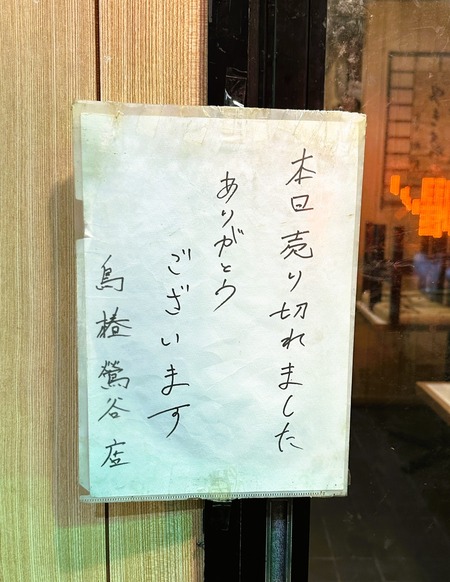 本日売り切れました
ありがとう
ございます
鳥椿鶯谷店